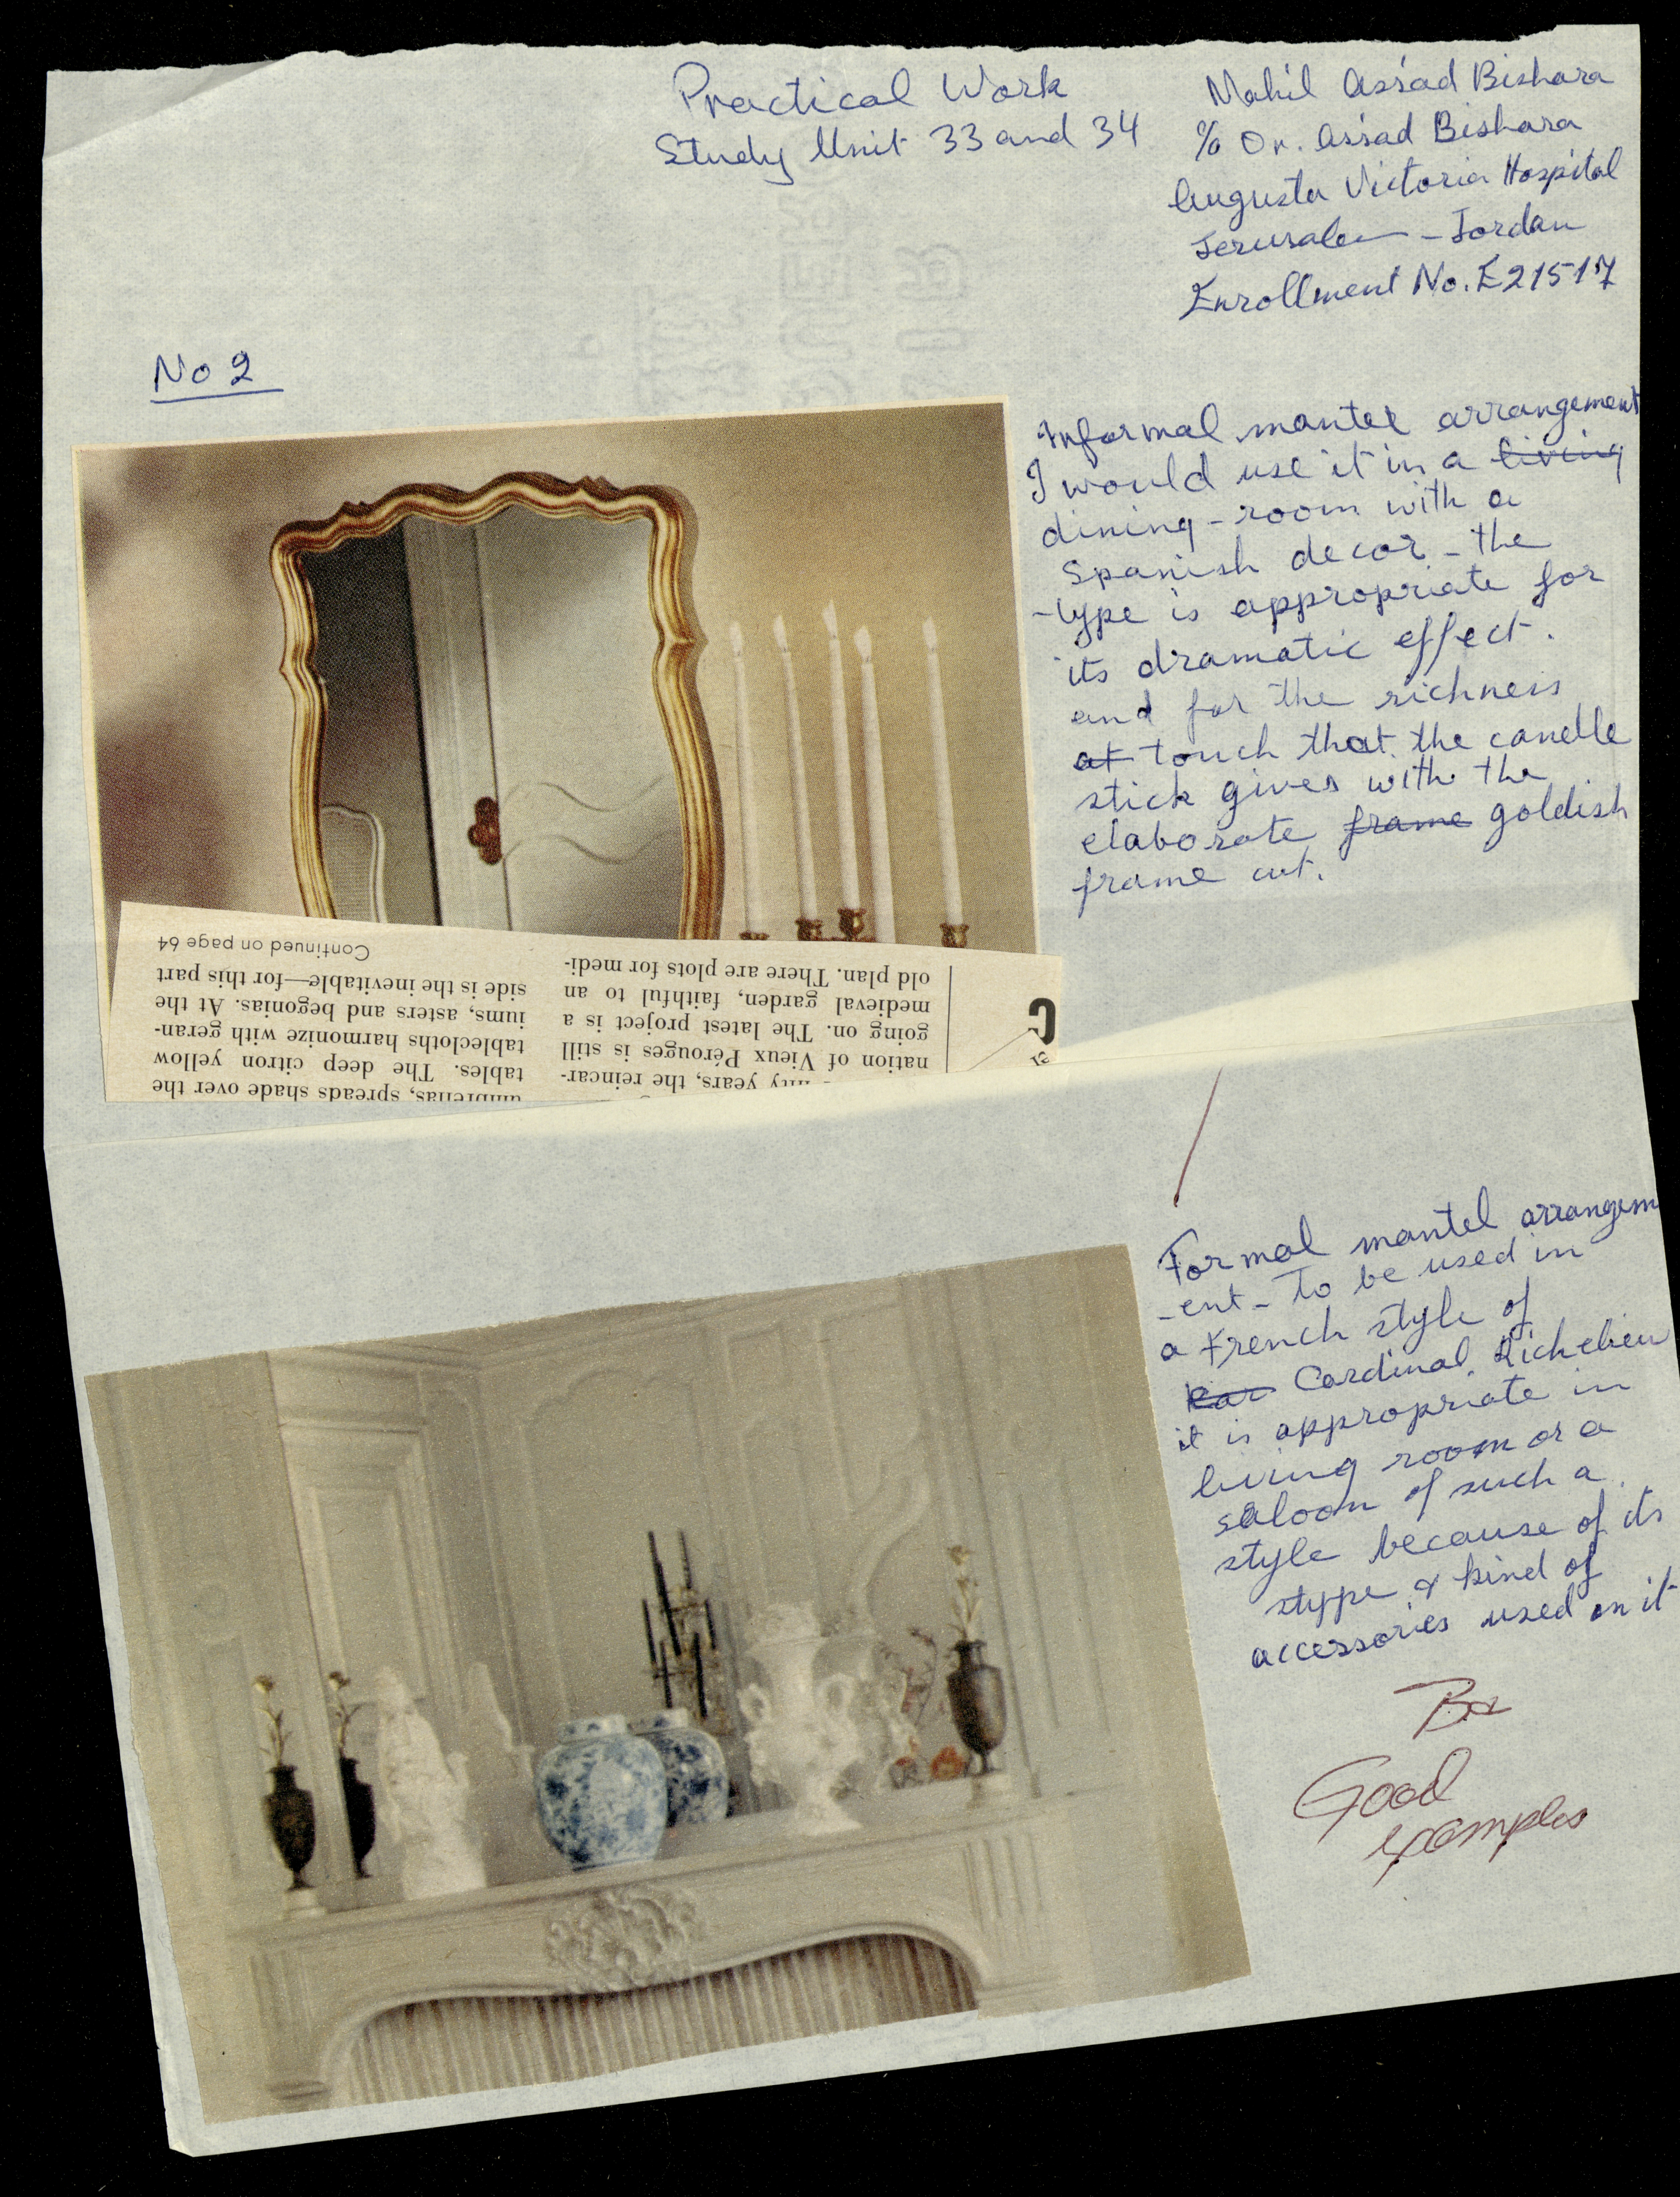 Practical Work
Study Unit 33 and 34
Mahil Assad Bishara
c/o Dr. Assad Bishara
Augusta Victoria Hospital
Jerusalem - Jordan
Enrollment No. E21517
No 2
Informal mantel arrangement
I would use it in a living
dining-room with a
Spanish decor - the
type is appropriate for
its dramatic effect.
and for the richness
at touch that the candle
stick gives with the
elaborate frame goldish
frame cut.
umbrellas, spreads shade over the
tables. The deep citron yellow
tablecloths harmonize with geran-
iums, asters and begonias. At the
side is the inevitable—for this part
Continued on page 64
fifty years, the reincar-
nation of Vieux Pérouges is still
going on. The latest project is a
medieval garden, faithful to an
old plan. There are plots for medi-
Formal mantel arrangem
-ent - To be used in
a French style of
Car Cardinal Richelieu
it is appropriate in
living room or a
saloon of such a
style because of its
stype & kind of
accessories used on it
Good
examples